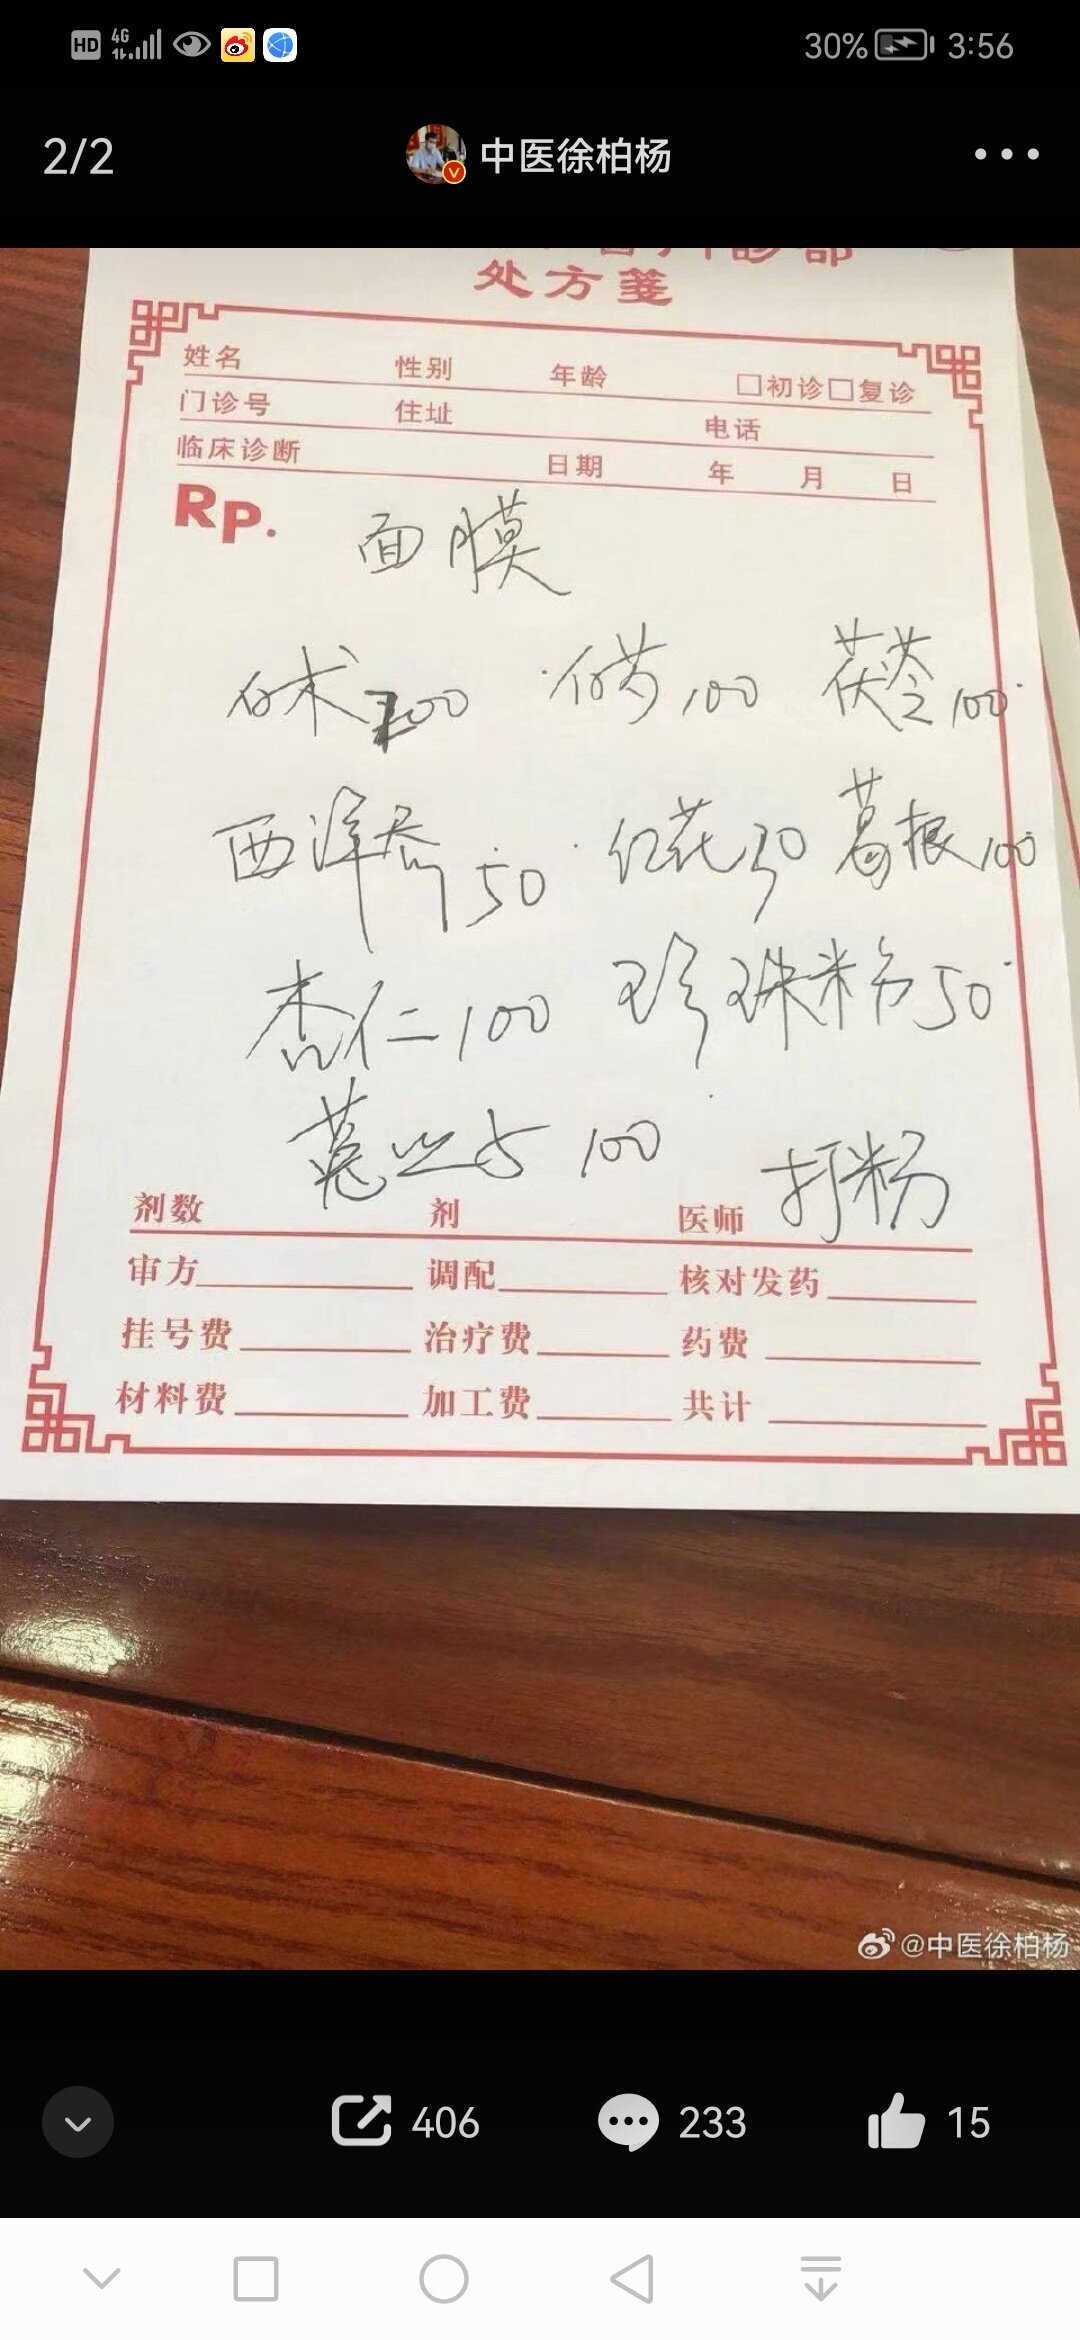 HD 4G 30% 3:56
2/2 中医徐柏杨
处方笺
姓名 性别 年龄 □初诊□复诊
门诊号 住址 电话
临床诊断 日期 年 月 日
Rp.
面膜
白术 白芍100 茯苓100
西洋参50 红花30 葛根100
杏仁100 珍珠粉50
菟丝子100 打粉
剂数 剂 医师
审方 调配 核对发药
挂号费 治疗费 药费
材料费 加工费 共计
@中医徐柏杨
406 233 15